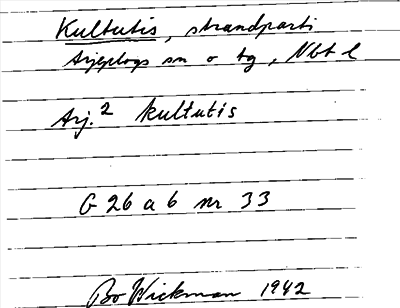 Kultutis, strandparti
Arjeplogs sn o tg, Nbt l
Arj.² kultutis
G 26 a b nr 33
Bo Wickman 1942